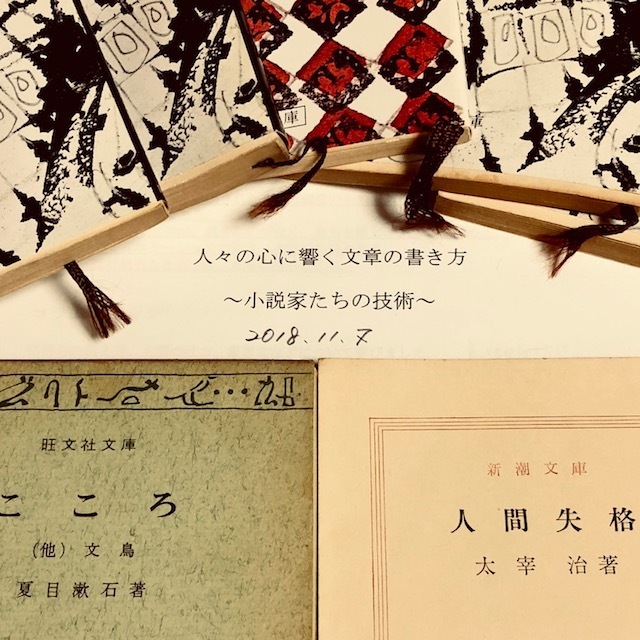 庫
人々の心に響く文章の書き方
～小説家たちの技術～
2018.11.7
旺文社文庫
こころ
(他)文鳥
夏目漱石著
新潮文庫
人間失格
太宰治著